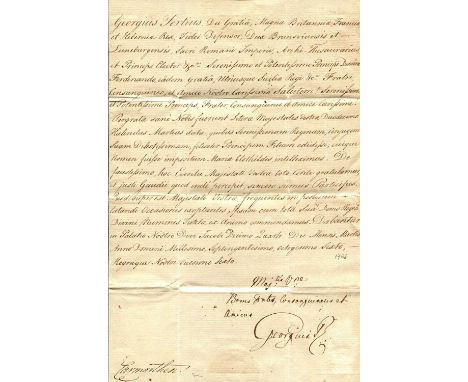 Georgius Tertius Dei Gratia, Magnæ Britanniæ Franciæ
et Hiberniæ Rex, Fidei Defensor, Dux Brunsvicensis et
Luneburgensis, Sacri Romani Imperii Archi-Thesaurarius
et Princeps Elector &c. Serenissimo et Potentissimo Principi Domino
Ferdinando eadem Gratia, Utriusque Siciliæ Regi &c. Fratri,
Consanguineo, et Amico Nostro Carissimo Salutem! Serenissime
et Potentissime Princeps, Frater, Consanguinee et Amice Carissime.
Pergratæ sane Nobis fuerunt Literæ Majestatis Vestræ Duodecimo
Kalendas Martias datæ, quibus Serenissimam Reginam, Conjugem
Suam Dilectissimam, feliciter Principem Filiam edidisse, cuique
Nomen fuisse impositum Maria Clothildes intelleximus. De
faustissimo hoc Eventu Majestati Vestræ toto corde gratulamur
et justi Gaudii quod inde percepit sumus Participes.
Quod super est Majestatis Vestræ frequentes in posterum
lætandi Occasiones exoptantes, Ipsam cum tota Sua Domo Regia
Divini Numinis Tutelæ ex Animo commendamus. Dabantur
in Palatio Nostro Divi Jacobi Decimo Quarto Die Mensis Martii
Anno Domini Millesimo Septingentesimo, octogesimo Sexto,
Regnique Nostri vicesimo Sexto. 1786
Majtis Vræ
Bonus Frater, Consanguineus et
Amicus
Georgius R
Carmarthen.